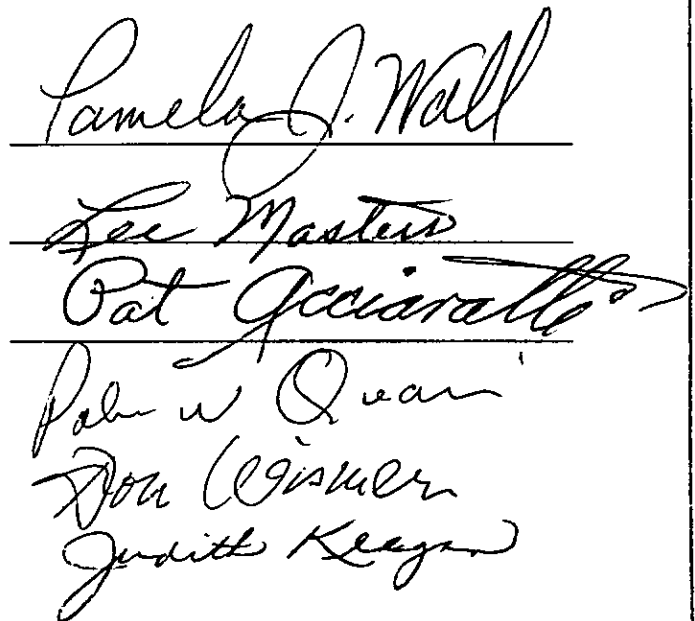 Pamela J. Wall
Lee Masters
Pat Acciavatti
W
Don Wismer
Judith Keegan